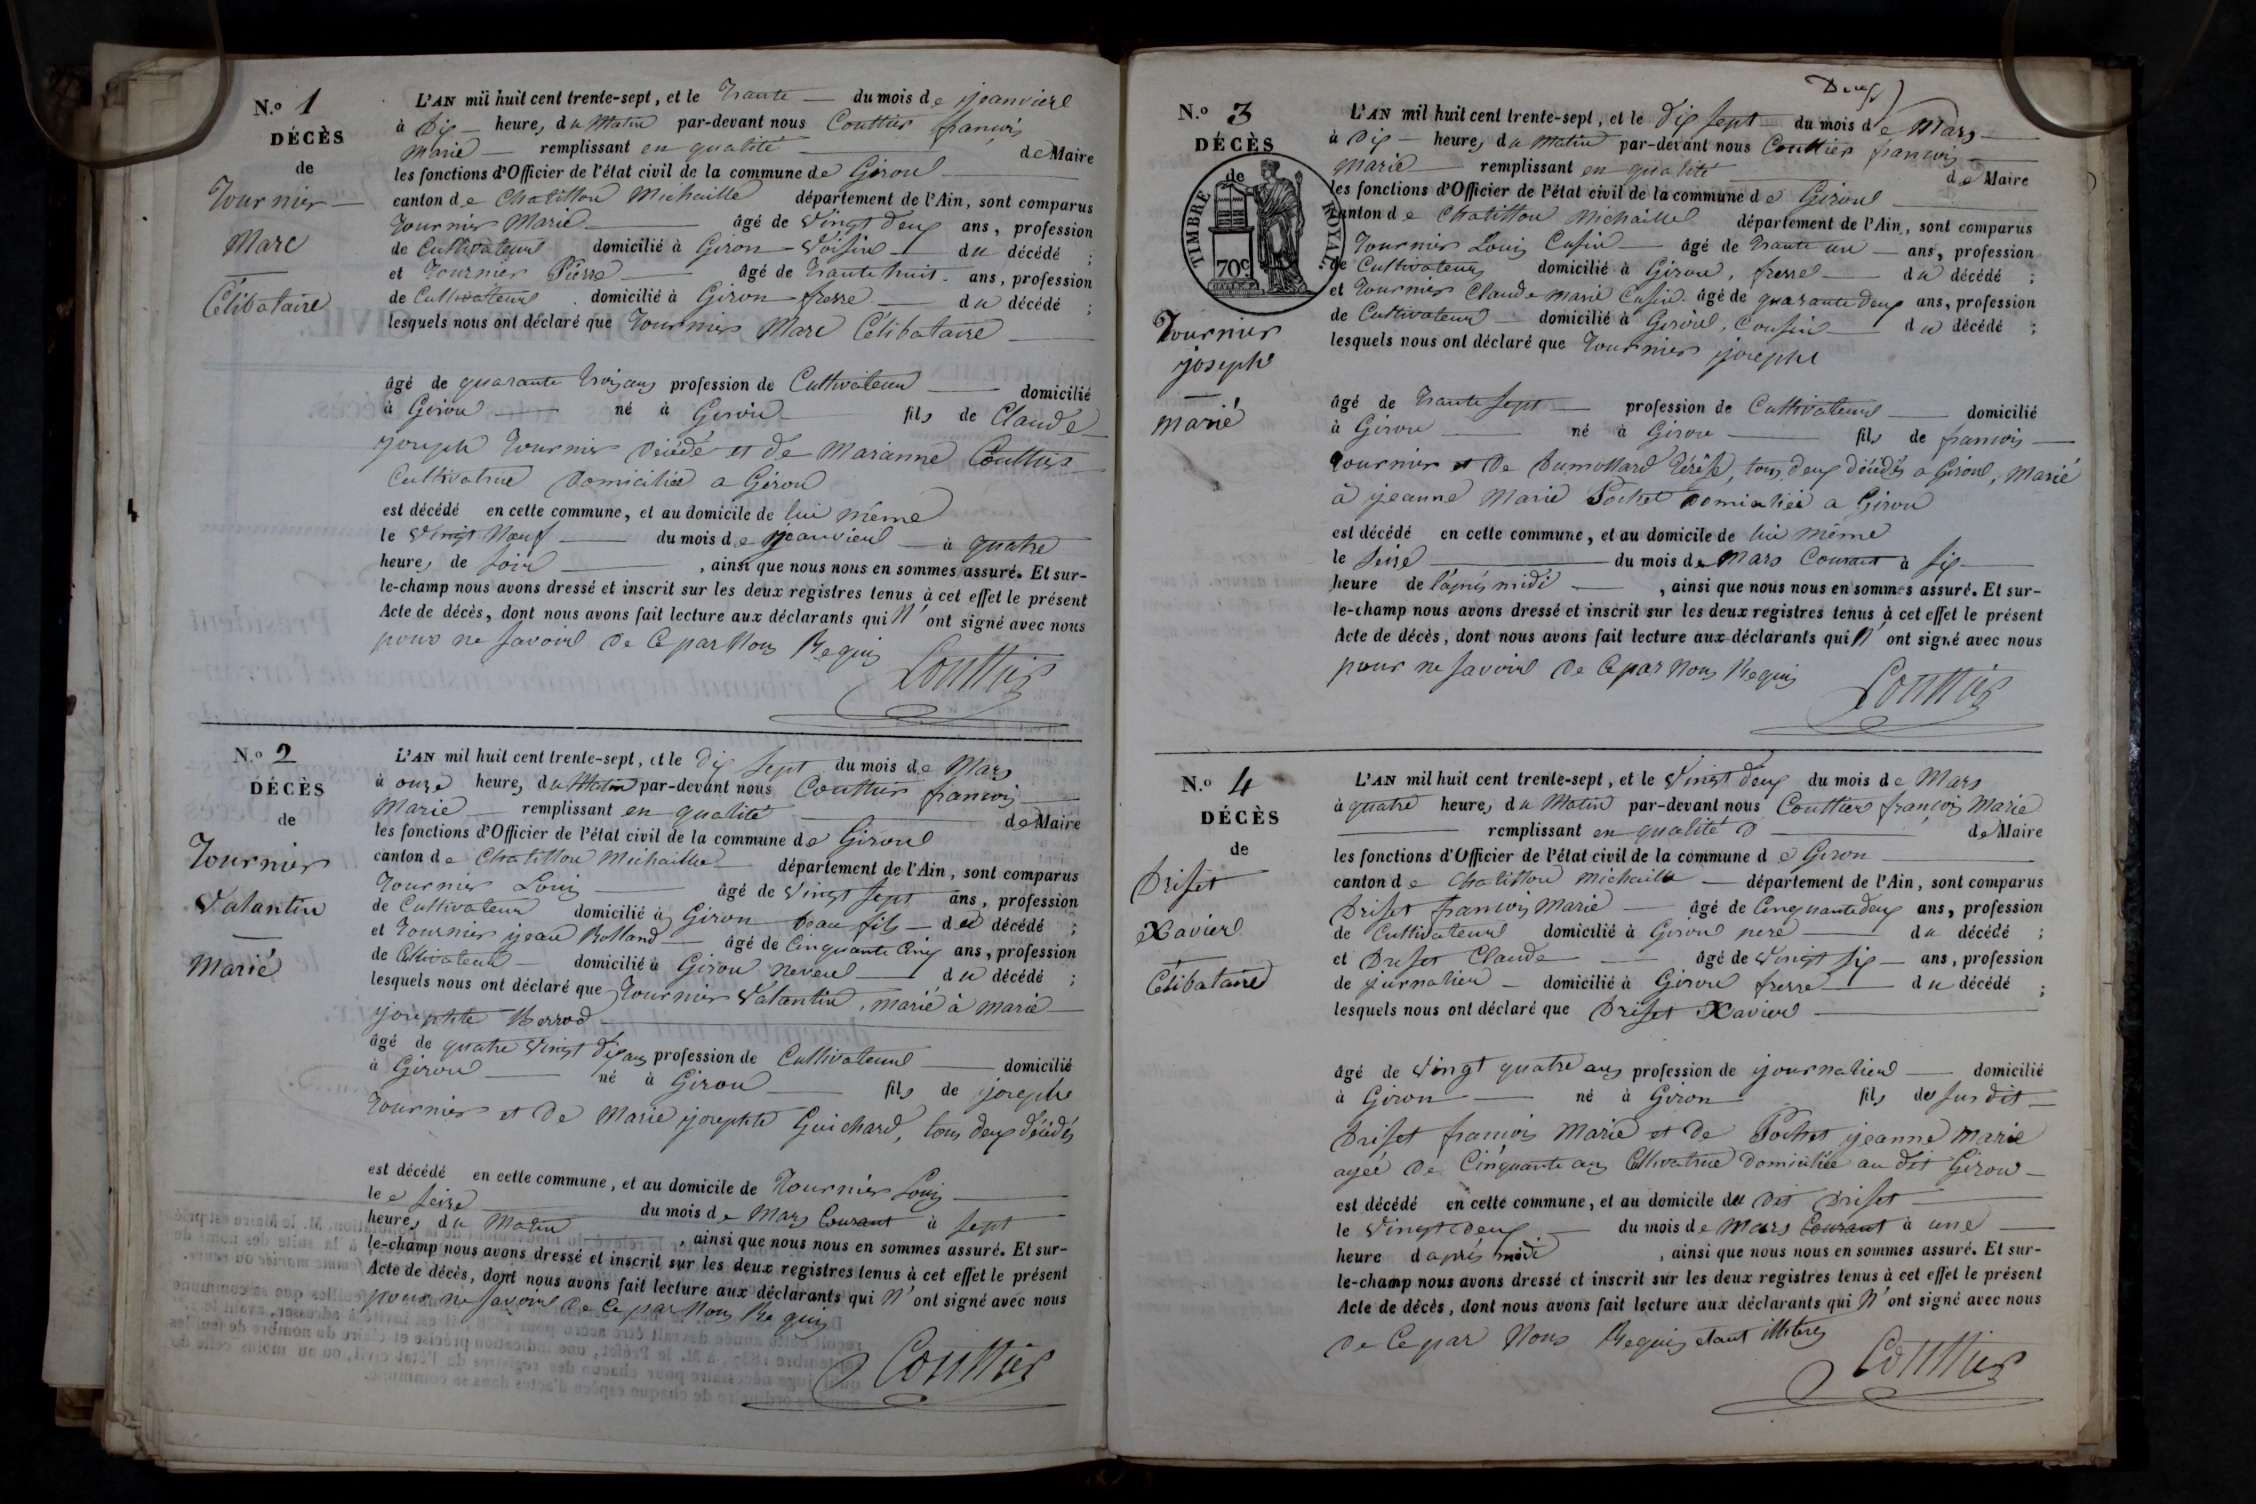 N.o 1
DÉCÈS
de
Tournier
Marc
Célibataire
L'AN mil huit cent trente-sept, et le Trante du mois de janvier
à Dix heures du Matin par-devant nous Couttier françois
Marie remplissant en qualité de Maire
les fonctions d'Officier de l'état civil de la commune de Giron
canton de Chatillon Michaille département de l'Ain, sont comparus
Tournier Marie âgé de Vingt deux ans, profession
de Cultivateur domicilié à Giron Voisin du décédé ;
et Tournier Pierre âgé de trante huit ans, profession
de Cultivateur domicilié à Giron frere du décédé ;
lesquels nous ont déclaré que Tournier Marc Célibataire
âgé de quarante trois ans profession de Cultivateur domicilié
à Giron né à Giron fils de Claude
joseph Tournier Décédé et de Marianne Couttier
Cultivatrice Domiciliée a Giron
est décédé en cette commune, et au domicile de lui même
le Vingt Neuf du mois de janvier à quatre
heures de soir , ainsi que nous nous en sommes assuré. Et sur-
le-champ nous avons dressé et inscrit sur les deux registres tenus à cet effet le présent
Acte de décès, dont nous avons fait lecture aux déclarants qui N'ont signé avec nous
pour ne savoir De Ce par Nous Requis
Couttier
N.o 2
DÉCÈS
de
Tournier
Valantin
Marié
L'AN mil huit cent trente-sept, et le Dix sept du mois de Mars
à onze heures du Matin par-devant nous Couttier françois
Marie remplissant en qualité de Maire
les fonctions d'Officier de l'état civil de la commune de Giron
canton de Chatillon Michaille département de l'Ain, sont comparus
Tournier Louis âgé de Vingt sept ans, profession
de Cultivateur domicilié à Giron Beau fils du décédé ;
et Tournier jean Rolland âgé de Cinquante Cinq ans, profession
de Cultivateur domicilié à Giron Neveu du décédé ;
lesquels nous ont déclaré que Tournier Valantin, marié à Marie
josephte Berrod
âgé de quatre Vingt Dix ans profession de Cultivateur domicilié
à Giron né à Giron fils de joseph
Tournier et De Marie josephte Guichard, tous deux décédés
est décédé en cette commune, et au domicile de Tournier Louis
le seize du mois de Mars Courant à sept
heures du Matin , ainsi que nous nous en sommes assuré. Et sur-
le-champ nous avons dressé et inscrit sur les deux registres tenus à cet effet le présent
Acte de décès, dont nous avons fait lecture aux déclarants qui N'ont signé avec nous
pour ne savoir De Ce par Nous Requis
Couttier
Deux
N.o 3
DÉCÈS
de
TIMBRE ROYAL
70c
Tournier
joseph
Marié
L'AN mil huit cent trente-sept, et le Dix sept du mois de Mars
à Dix heures du Matin par-devant nous Couttier françois
Marie remplissant en qualité de Maire
les fonctions d'Officier de l'état civil de la commune de Giron
canton de Chatillon Michaille département de l'Ain, sont comparus
Tournier Louis Cusin âgé de trante un ans, profession
de Cultivateur domicilié à Giron, frere du décédé ;
et Tournier Claude Marie Cusin âgé de quarante deux ans, profession
de Cultivateur domicilié à Giron, Cousin du décédé ;
lesquels nous ont déclaré que Tournier joseph
âgé de trante sept profession de Cultivateur domicilié
à Giron né à Giron fils de françois
Tournier et De Dumollard Térèse, tous deux décédés a Giron, Marié
à jeanne Marie Pochet Domiciliée a Giron
est décédé en cette commune, et au domicile de lui même
le seize du mois de Mars Courant à six
heure de l'après midi , ainsi que nous nous en sommes assuré. Et sur-
le-champ nous avons dressé et inscrit sur les deux registres tenus à cet effet le présent
Acte de décès, dont nous avons fait lecture aux déclarants qui N'ont signé avec nous
pour ne savoir De Ce par Nous Requis
Couttier
N.o 4
DÉCÈS
de
Driset
Xavier
Célibataire
L'AN mil huit cent trente-sept, et le Vingt deux du mois de Mars
à quatre heures du Matin par-devant nous Couttier françois Marie
remplissant en qualité D de Maire
les fonctions d'Officier de l'état civil de la commune de Giron
canton de Chatillon Michaille département de l'Ain, sont comparus
Driset françois Marie âgé de Cinquante deux ans, profession
de Cultivateur domicilié à Giron pere du décédé ;
et Driset Claude âgé de Vingt six ans, profession
de jurnalier domicilié à Giron frere du décédé ;
lesquels nous ont déclaré que Driset Xavier
âgé de Vingt quatre ans profession de journalier domicilié
à Giron né à Giron fils de susdit
Driset françois Marie et De Pochet jeanne Marie
agée De Cinquante ans Cultivatrice domiciliée au dit Giron
est décédé en cette commune, et au domicile du Dit Driset
le Vingt deux du mois de Mars Courant à une
heure d après midi , ainsi que nous nous en sommes assuré. Et sur-
le-champ nous avons dressé et inscrit sur les deux registres tenus à cet effet le présent
Acte de décès, dont nous avons fait lecture aux déclarants qui N'ont signé avec nous
De Ce par Nous Requis etant illiteres
Couttier